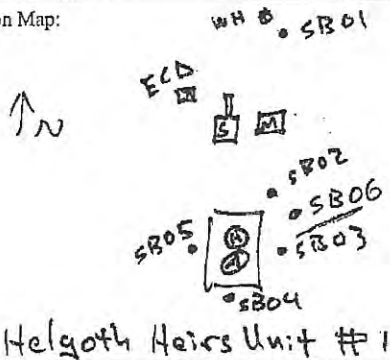 on Map:
WH
SB01
ECD
N
S
M
SB02
SB06
SB03
SB05
SB04
Helgoth Heirs Unit #1